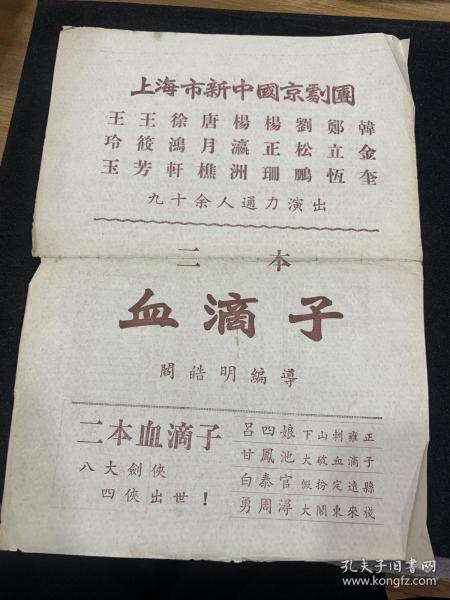 上海市新中國京劇團
王玲玉
王筱芳
徐鴻軒
唐月樵
楊瀛洲
楊正珊
劉松鵬
鄭立恆
韓金奎
九十余人通力演出
二本
血滴子
閻皓明編導
二本血滴子
八大劍俠
四俠出世！
呂四娘 下山刺雍正
甘鳳池 大破血滴子
白泰官 假扮定遠縣
勇周潯 大鬧東來棧
孔夫子旧书网
www.kongfz.com